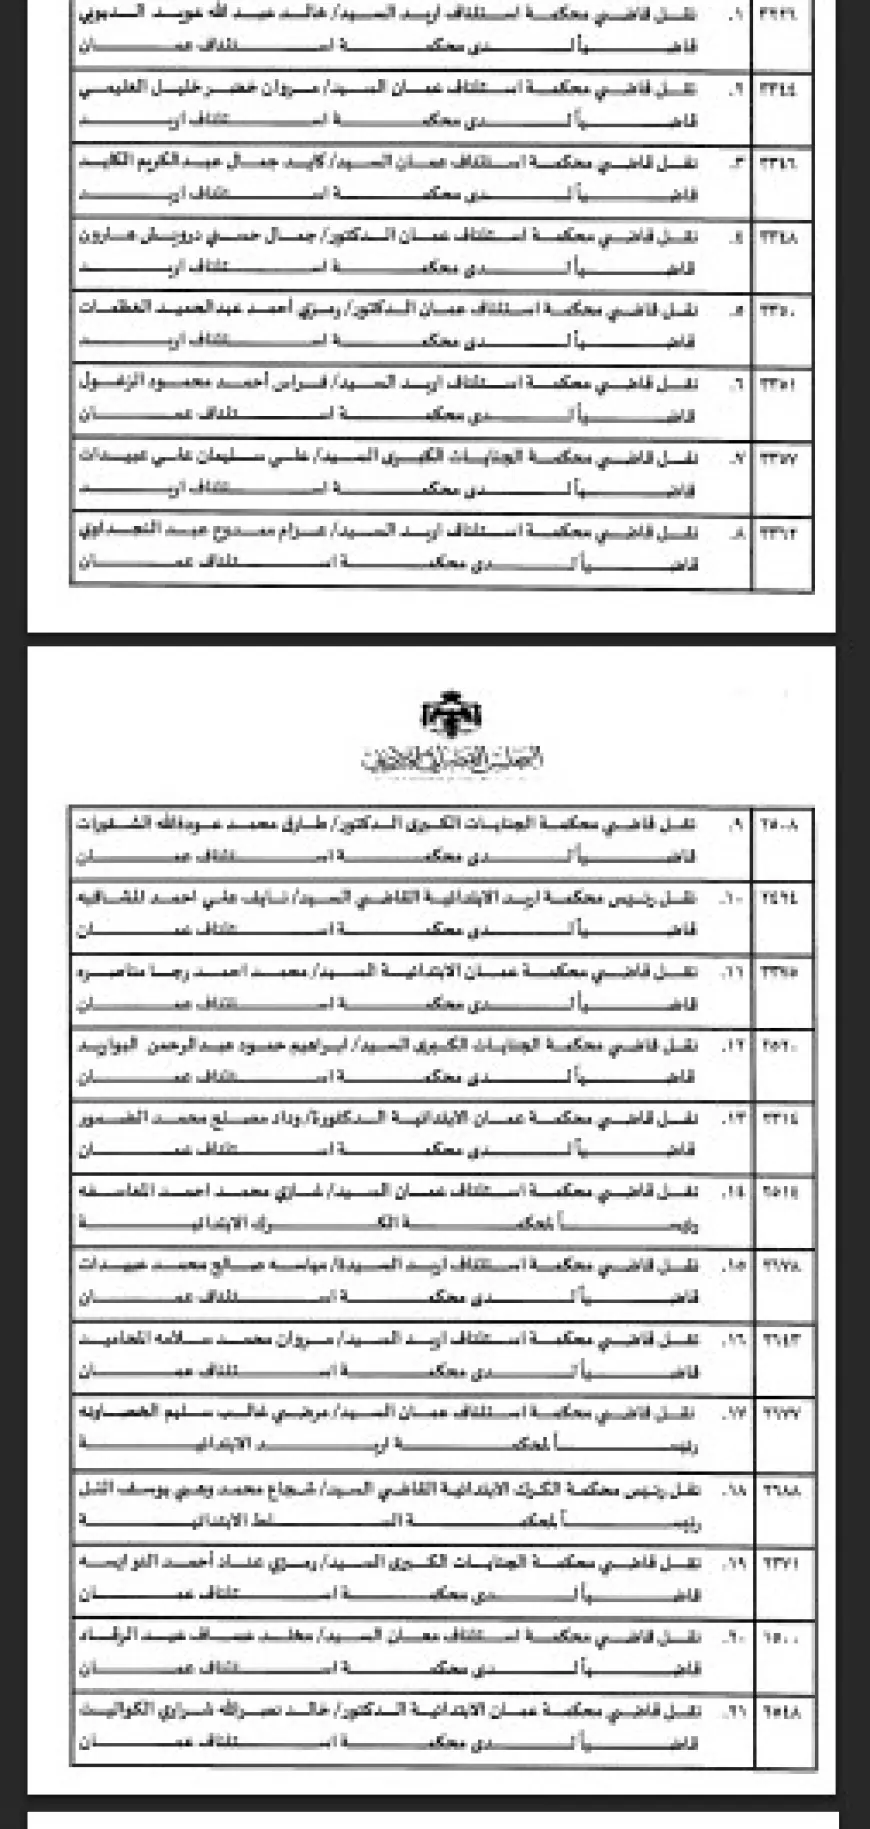 ١. نقل قاضي محكمة استئناف اربد السيد/ خالد عبد الله عويد
قاضياً لدى محكمة استئناف عمان
٣٣٤٤ ٢. نقل قاضي محكمة استئناف عمان السيد/ مروان خضر خليل العليمي
قاضياً لدى محكمة استئناف اربد
٣٣٤٦ ٣. نقل قاضي محكمة استئناف عمان السيد/ كايد جمال عبد الكريم الكايد
قاضياً لدى محكمة استئناف اربد
٣٣٤٨ ٤. نقل قاضي محكمة استئناف عمان الدكتور/ جمال حسني درويش هارون
قاضياً لدى محكمة استئناف اربد
٣٣٥٠ ٥. نقل قاضي محكمة استئناف عمان الدكتور/ رمزي أحمد عبدالحميد العظمات
قاضياً لدى محكمة استئناف اربد
٣٣٥١ ٦. نقل قاضي محكمة استئناف اربد السيد/ فراس أحمد محمود الزغول
قاضياً لدى محكمة استئناف عمان
٣٣٥٧ ٧. نقل قاضي محكمة الجنايات الكبرى السيد/ علي سليمان علي عبيدات
قاضياً لدى محكمة استئناف اربد
٨. نقل قاضي محكمة استئناف اربد السيد/ عزام ممدوح عبد النجداوي
قاضياً لدى محكمة استئناف عمان
المجلس القضائي الأردني
٩. نقل قاضي محكمة الجنايات الكبرى الدكتور/ طارق محمد عودةالله الشقيرات
قاضياً لدى محكمة استئناف عمان
١٠. نقل رئيس محكمة اربد الابتدائية القاضي السيد/ نايف علي احمد المشاقبه
قاضياً لدى محكمة استئناف عمان
١١. نقل قاضي محكمة عمان الابتدائية السيد/ محمد احمد رجا مناصره
قاضياً لدى محكمة استئناف عمان
١٢. نقل قاضي محكمة الجنايات الكبرى السيد/ ابراهيم حمود عبدالرحمن البواريد
قاضياً لدى محكمة استئناف عمان
٣٣١٤ ١٣. نقل قاضي محكمة عمان الابتدائية الدكتورة/ وداد مصلح محمد الضمور
قاضياً لدى محكمة استئناف عمان
١٤. نقل قاضي محكمة استئناف عمان السيد/ غازي محمد احمد المعاسفه
رئيساً لمحكمة الكرك الابتدائية
١٥. نقل قاضي محكمة استئناف اربد السيدة/ مياسه صالح محمد عبيدات
قاضياً لدى محكمة استئناف عمان
١٦. نقل قاضي محكمة استئناف اربد السيد/ مروان محمد سلامه المحاميد
قاضياً لدى محكمة استئناف عمان
١٧. نقل قاضي محكمة استئناف عمان السيد/ مرضي غالب سليم الخصاونه
رئيساً لمحكمة اربد الابتدائية
١٨. نقل رئيس محكمة الكرك الابتدائية القاضي السيد/ شجاع محمد وهبي يوسف التل
رئيساً لمحكمة السلط الابتدائية
٣٣٧١ ١٩. نقل قاضي محكمة الجنايات الكبرى السيد/ رمزي عناد أحمد النوايسه
قاضياً لدى محكمة استئناف عمان
٢٠. نقل قاضي محكمة استئناف معان السيد/ مخلد عساف عيد الرقاد
قاضياً لدى محكمة استئناف عمان
٢١. نقل قاضي محكمة عمان الابتدائية الدكتور/ خالد نصرالله شراري الكواليت
قاضياً لدى محكمة استئناف عمان